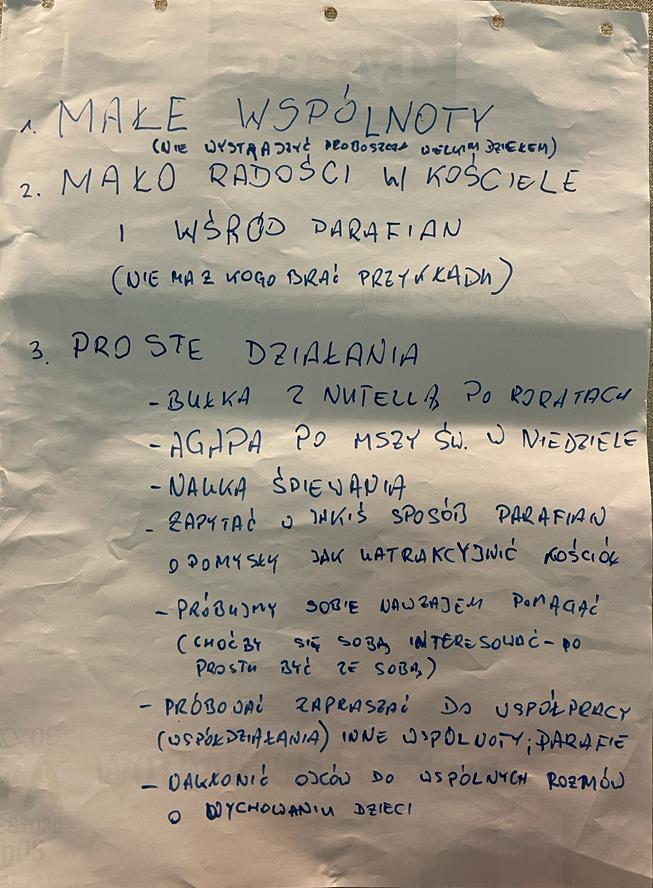 1. MAŁE WSPÓLNOTY
(NIE WYSTRASZYĆ PROBOSZCZA WIELKIM DZIEŁEM)
2. MAŁO RADOŚCI W KOŚCIELE
I WŚRÓD PARAFIAN
(NIE MA Z KOGO BRAĆ PRZYKŁADU)
3. PROSTE DZIAŁANIA
- BUŁKA Z NUTELLĄ PO RORATACH
- AGAPA PO MSZY ŚW. W NIEDZIELE
- NAUKA ŚPIEWANIA
- ZAPYTAĆ W JAKIŚ SPOSÓB PARAFIAN
O POMYSŁY JAK UATRAKCYJNIĆ KOŚCIÓŁ
- PRÓBUJMY SOBIE NAWZAJEM POMAGAĆ
(CHOĆBY SIĘ SOBĄ INTERESOWAĆ - PO
PROSTU BYĆ ZE SOBĄ)
- PRÓBOWAĆ ZAPRASZAĆ DO WSPÓŁPRACY
(WSPÓŁDZIAŁANIA) INNE WSPÓLNOTY; PARAFIE
- NAKŁONIĆ OJCÓW DO WSPÓLNYCH ROZMÓW
O WYCHOWANIU DZIECI